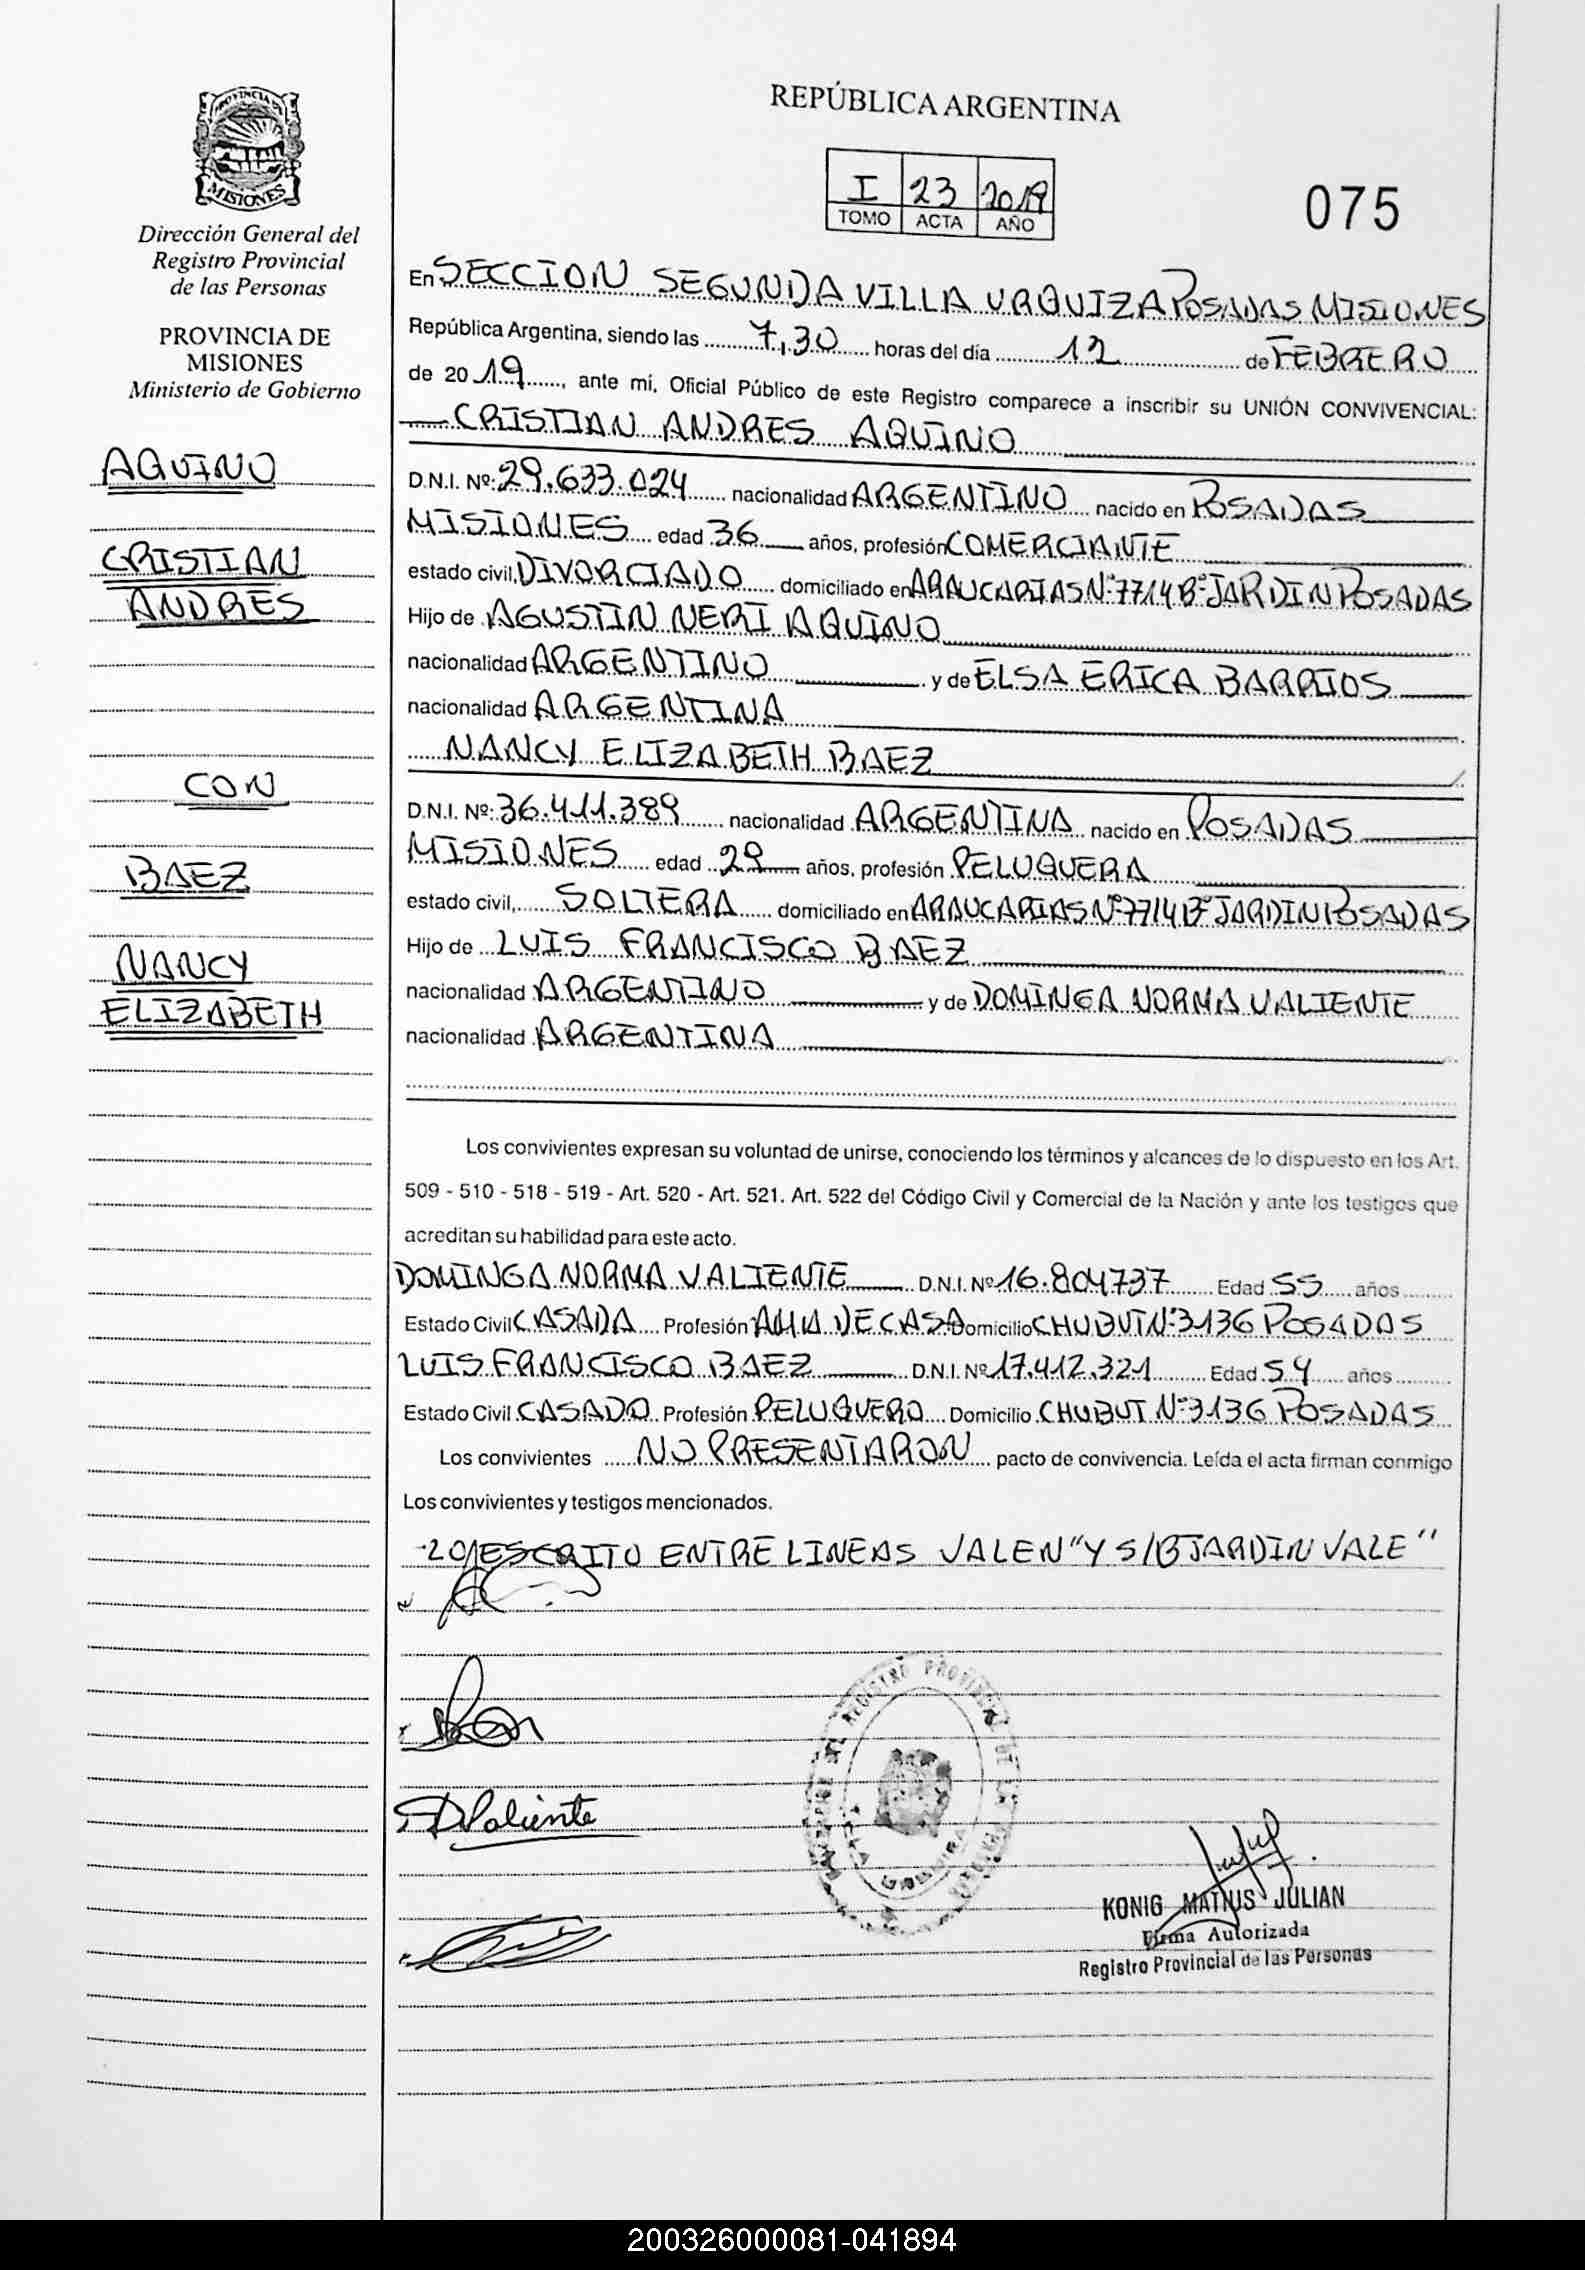 PROVINCIA DE
MISIONES
Dirección General del
Registro Provincial
de las Personas
PROVINCIA DE
MISIONES
Ministerio de Gobierno
AQUINO
CRISTIAN
ANDRES
CON
BAEZ
NANCY
ELIZABETH
REPÚBLICA ARGENTINA
I 23 2019
TOMO ACTA AÑO
075
En SECCION SEGUNDA VILLA URQUIZA POSADAS MISIONES
República Argentina, siendo las 7,30 horas del día 12 de FEBRERO
de 2019, ante mí, Oficial Público de este Registro comparece a inscribir su UNIÓN CONVIVENCIAL:
CRISTIAN ANDRES AQUINO
D.N.I. Nº: 29.633.024 nacionalidad ARGENTINO nacido en POSADAS
MISIONES edad 36 años, profesión COMERCIANTE
estado civil, DIVORCIADO domiciliado en ARAUCARIAS Nº 7714 Bº JARDIN POSADAS
Hijo de AGUSTIN NERI AQUINO
nacionalidad ARGENTINO y de ELSA ERICA BARRIOS
nacionalidad ARGENTINA
NANCY ELIZABETH BAEZ
D.N.I. Nº: 36.411.389 nacionalidad ARGENTINA nacido en POSADAS
MISIONES edad 29 años, profesión PELUQUERA
estado civil, SOLTERA domiciliado en ARAUCARIAS Nº 7714 Bº JARDIN POSADAS
Hijo de LUIS FRANCISCO BAEZ
nacionalidad ARGENTINO y de DOMINGA NORMA VALIENTE
nacionalidad ARGENTINA
Los convivientes expresan su voluntad de unirse, conociendo los términos y alcances de lo dispuesto en los Art.
509 - 510 - 518 - 519 - Art. 520 - Art. 521. Art. 522 del Código Civil y Comercial de la Nación y ante los testigos que
acreditan su habilidad para este acto.
DOMINGA NORMA VALIENTE D.N.I. Nº 16.804737 Edad 55 años
Estado Civil CASADA Profesión AMA DE CASA Domicilio CHUBUT Nº 3136 POSADAS
LUIS FRANCISCO BAEZ D.N.I. Nº 17.412.321 Edad 54 años
Estado Civil CASADO Profesión PELUQUERO Domicilio CHUBUT Nº 3136 POSADAS
Los convivientes NO PRESENTARON pacto de convivencia. Leída el acta firman conmigo
Los convivientes y testigos mencionados.
ESCRITO ENTRE LINEAS VALEN "Y S/B JARDIN VALE"
DValiente
REGISTRO PROVINCIAL DE LAS
KONIG MATIUS JULIAN
Firma Autorizada
Registro Provincial de las Personas
200326000081-041894